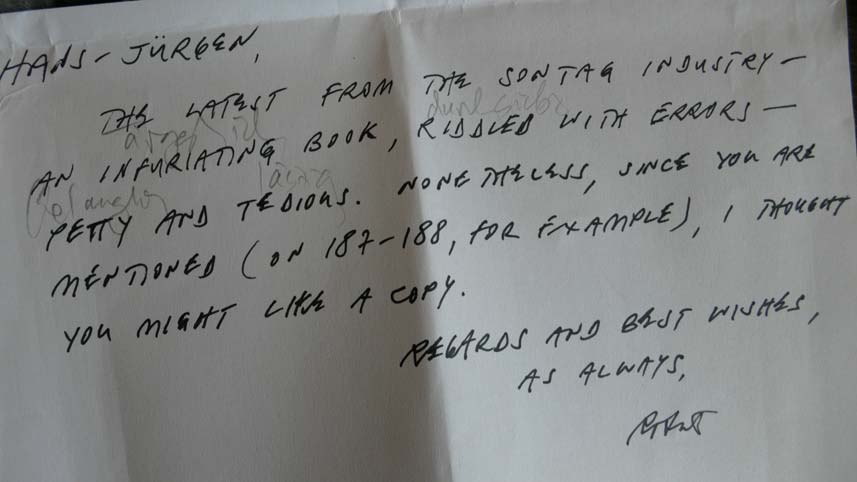 HANS-JÜRGEN,
THE LATEST FROM THE SONTAG INDUSTRY —
AN INFURIATING BOOK, RIDDLED WITH ERRORS —
PETTY AND TEDIOUS. NONETHELESS, SINCE YOU ARE
MENTIONED (ON 187-188, FOR EXAMPLE), I THOUGHT
YOU MIGHT LIKE A COPY.
REGARDS AND BEST WISHES,
AS ALWAYS,